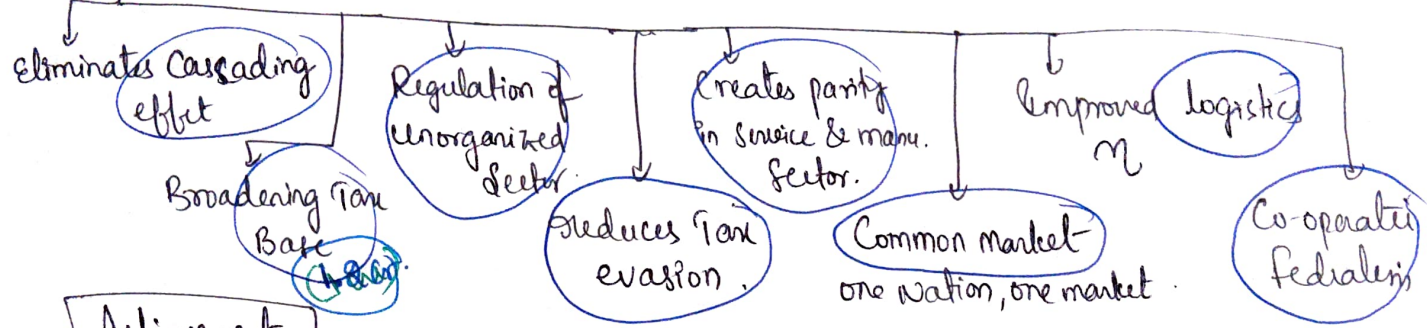 Eliminates Cascading
effect
Broadening Tax
Base
Regulation of
unorganized
sector.
reduces Tax
evasion.
Creates parity
in service & manu.
sector.
Common market
one Nation, one market.
Improved logistics
η
Co-operative
fedralism